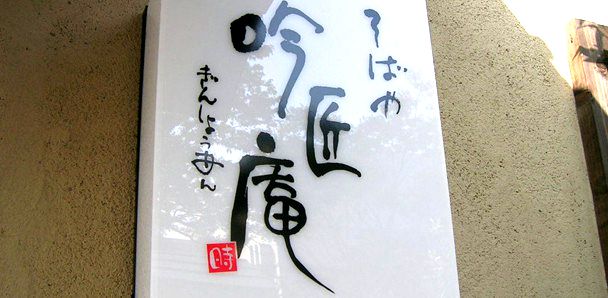 そばや
吟匠庵
ぎんしょうあん
時